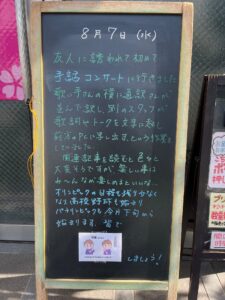 8月7日(水)
友人に誘われて初めて
手話コンサートに行きました
歌い手さんの横に通訳さんが
並んで訳し、別のスタッフが
歌詞やトークを文字に起し
前方のPCに写し出すという作業を
していました
関連記事を読むと色々と
大変そうですが、楽しい事は
み〜んなが楽しめるといいな…
オリンピックの日程も残り少なく
なって高校野球も始まり
パラリンピックも今月下旬から
始まります。皆で
しましょう!